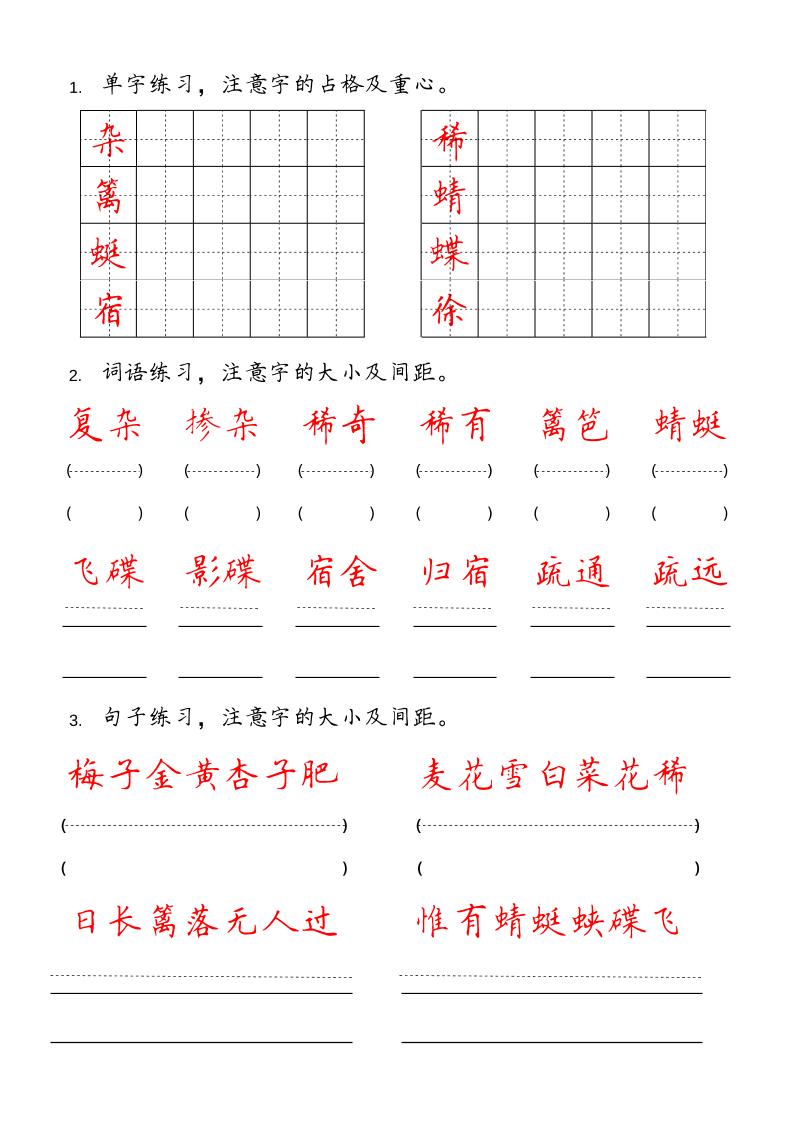 1. 单字练习，注意字的占格及重心。
杂 稀
篱 蜻
蜓 蝶
宿 徐
2. 词语练习，注意字的大小及间距。
复杂 掺杂 稀奇 稀有 篱笆 蜻蜓
( ) ( ) ( ) ( ) ( ) ( )
( ) ( ) ( ) ( ) ( ) ( )
飞碟 影碟 宿舍 归宿 疏通 疏远
3. 句子练习，注意字的大小及间距。
梅子金黄杏子肥 麦花雪白菜花稀
( ) ( )
( ) ( )
日长篱落无人过 惟有蜻蜓蛱碟飞